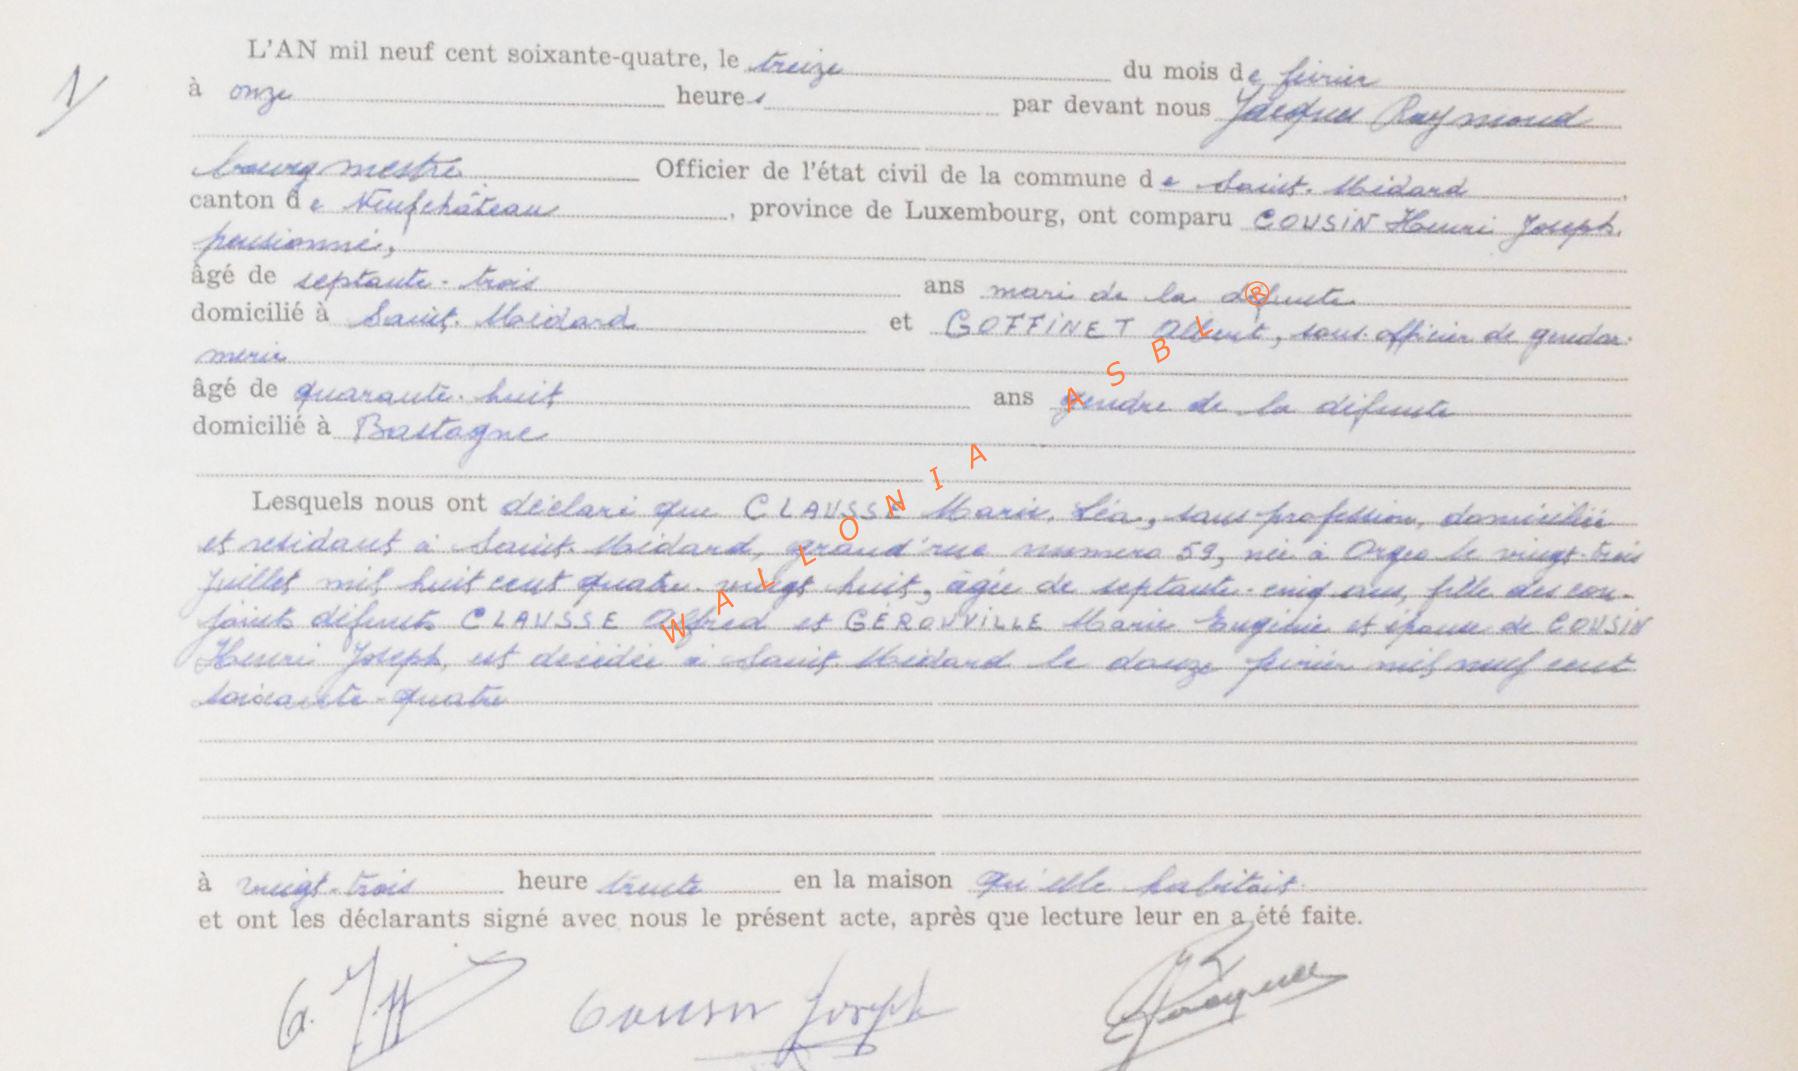 L'AN mil neuf cent soixante-quatre, le treize du mois de février
1/ à onze heures par devant nous Jacques Raymond
bourgmestre Officier de l'état civil de la commune de Saint-Médard,
canton de Neufchâteau, province de Luxembourg, ont comparu COUSIN Henri Joseph,
pensionné,
âgé de septante-trois ans mari de la défunte
domicilié à Saint-Médard et GOFFINET Albert, sous-officier de gendar-
merie
âgé de quarante-huit ans gendre de la défunte
domicilié à Bastogne
Lesquels nous ont déclaré que CLAUSSE Marie, Léa, sans profession, domiciliée
et résidant à Saint-Médard, grand'rue numéro 59, née à Orgeo le vingt-trois
juillet mil huit cent quatre-vingt huit, âgée de septante-cinq ans, fille des con-
joints défunts CLAUSSE Alfred et GÉROUVILLE Marie Eugénie et épouse de COUSIN
Henri Joseph, est décédée à Saint-Médard le douze février mil neuf cent
soixante-quatre
à vingt-trois heure trente en la maison qu'elle habitait.
et ont les déclarants signé avec nous le présent acte, après que lecture leur en a été faite.
Cousin Joseph
WALLONIA ASBL ®